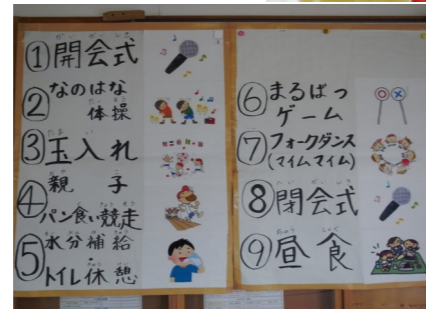 ①開会式
②なのはな
体操
③玉入れ
④親子
パン食い競走
⑤水分補給
・
トイレ休憩
⑥まるばつ
ゲーム
⑦フォークダンス
(マイムマイム)
⑧閉会式
⑨昼食